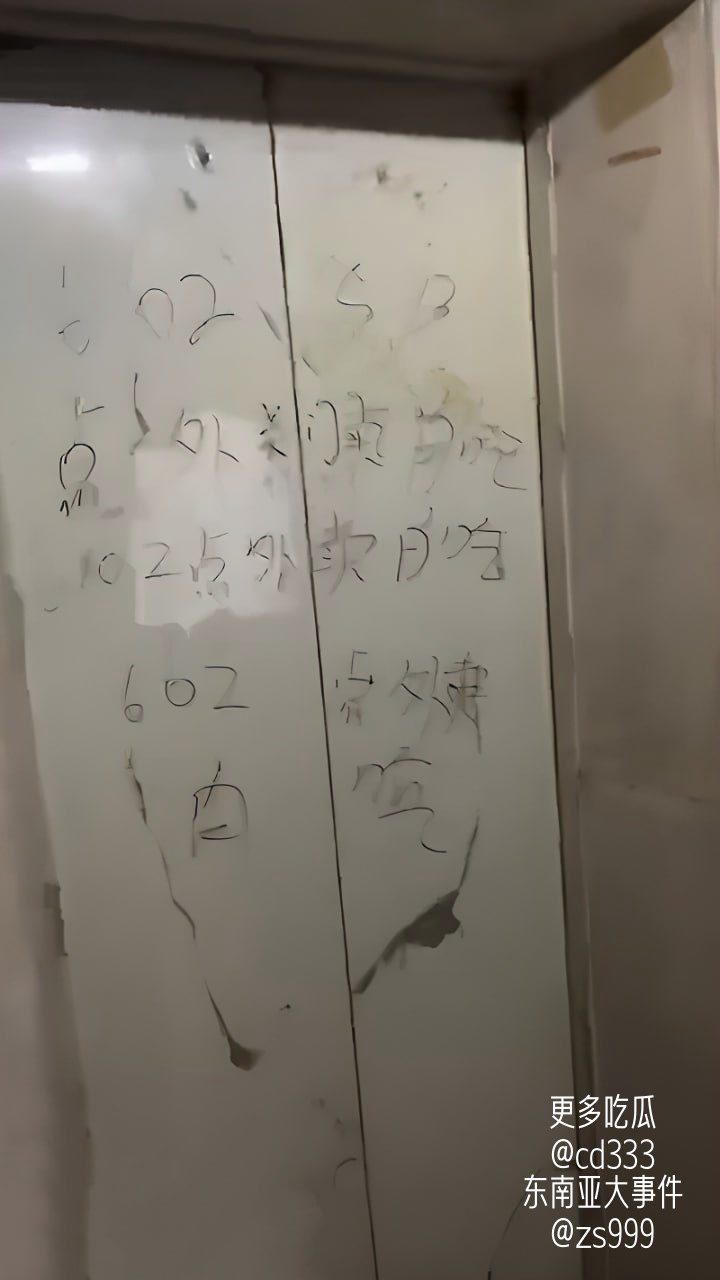 02、SB
点外卖 自吃
102点外卖自吃
602 点外卖
白 吃
更多吃瓜
@cd333
东南亚大事件
@zs999